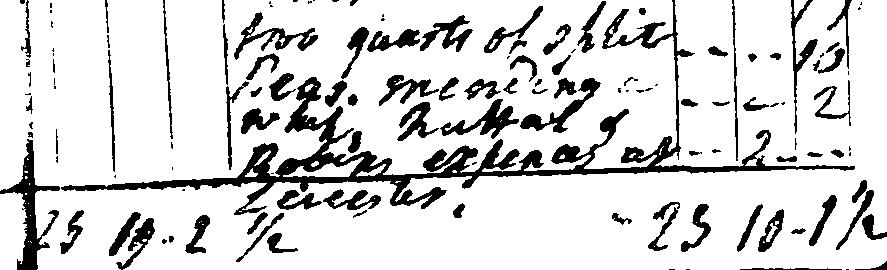 two quarts of split - - - - 10
Peas. mending a - - - 2
whip, Nuttal &
Robins expences at - - 2 - - -
Leicester.
25 10 - 2 1/2 25 10 - 1 1/2